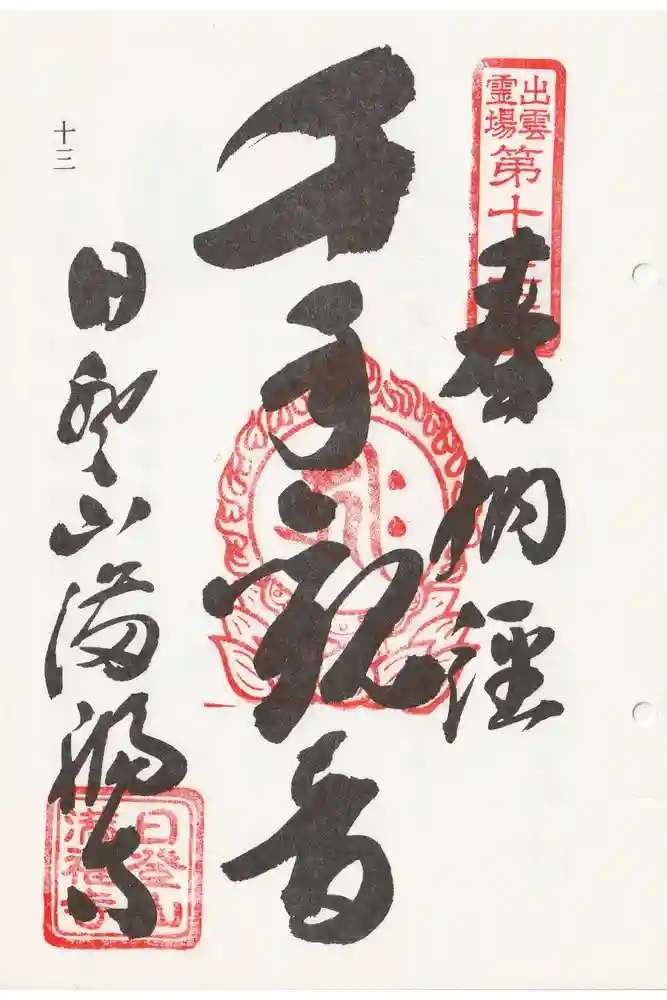 出雲
霊場
第十三番
奉納經
千手観音
日登山満福寺
十三
日登山
満福寺